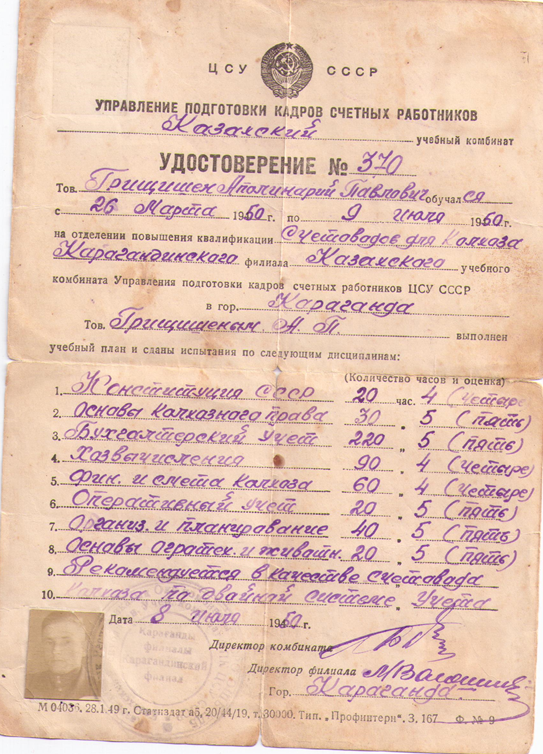 ЦСУ СССР
УПРАВЛЕНИЕ ПОДГОТОВКИ КАДРОВ СЧЕТНЫХ РАБОТНИКОВ
Казахский учебный комбинат
УДОСТОВЕРЕНИЕ № 370
Тов. Грищишен Аполинарий Павлович обучался
с 26 Марта 1950г. по 9 июля 1950г.
на отделении повышения квалификации Счетоводов для Колхоза
Карагандинского филиала Казахского учебного
комбината Управления подготовки кадров счетных работников ЦСУ СССР
в гор. Караганда
Тов. Грищишеным А. П. выполнен
учебный план и сданы испытания по следующим дисциплинам:
(Количество часов и оценка)
1. Конституция СССР 20 час. 4 (четыре
2. Основы колхознаго права 30 „ 5 (пять)
3. Бухгалтерский учет 220 „ 5 (пять)
4. Хозвычисления 90 „ 4 (четыре)
5. фин. и смета колхоза 60 „ 4 (четыре)
6. Оперативный учет 20 „ 5 (пять)
7. Организ. и планирование 40 „ 5 (пять)
8. Основы агротех. и животн. 20 „ 5 (пять)
9. Рекомендуется в качестве счетовода
10. Колхоза по двойной системе учета
Дата 8 июля 1950г.
Караганды
филиалы
Карагандинский
филиал
Директор комбината
Директор филиала
Гор. Караганда
М 04036. 28.1.49 г. Статиздат а5, 20/44/19, т. 30000. Тип. „Профинтерн“. З. 167 Ф. № 9